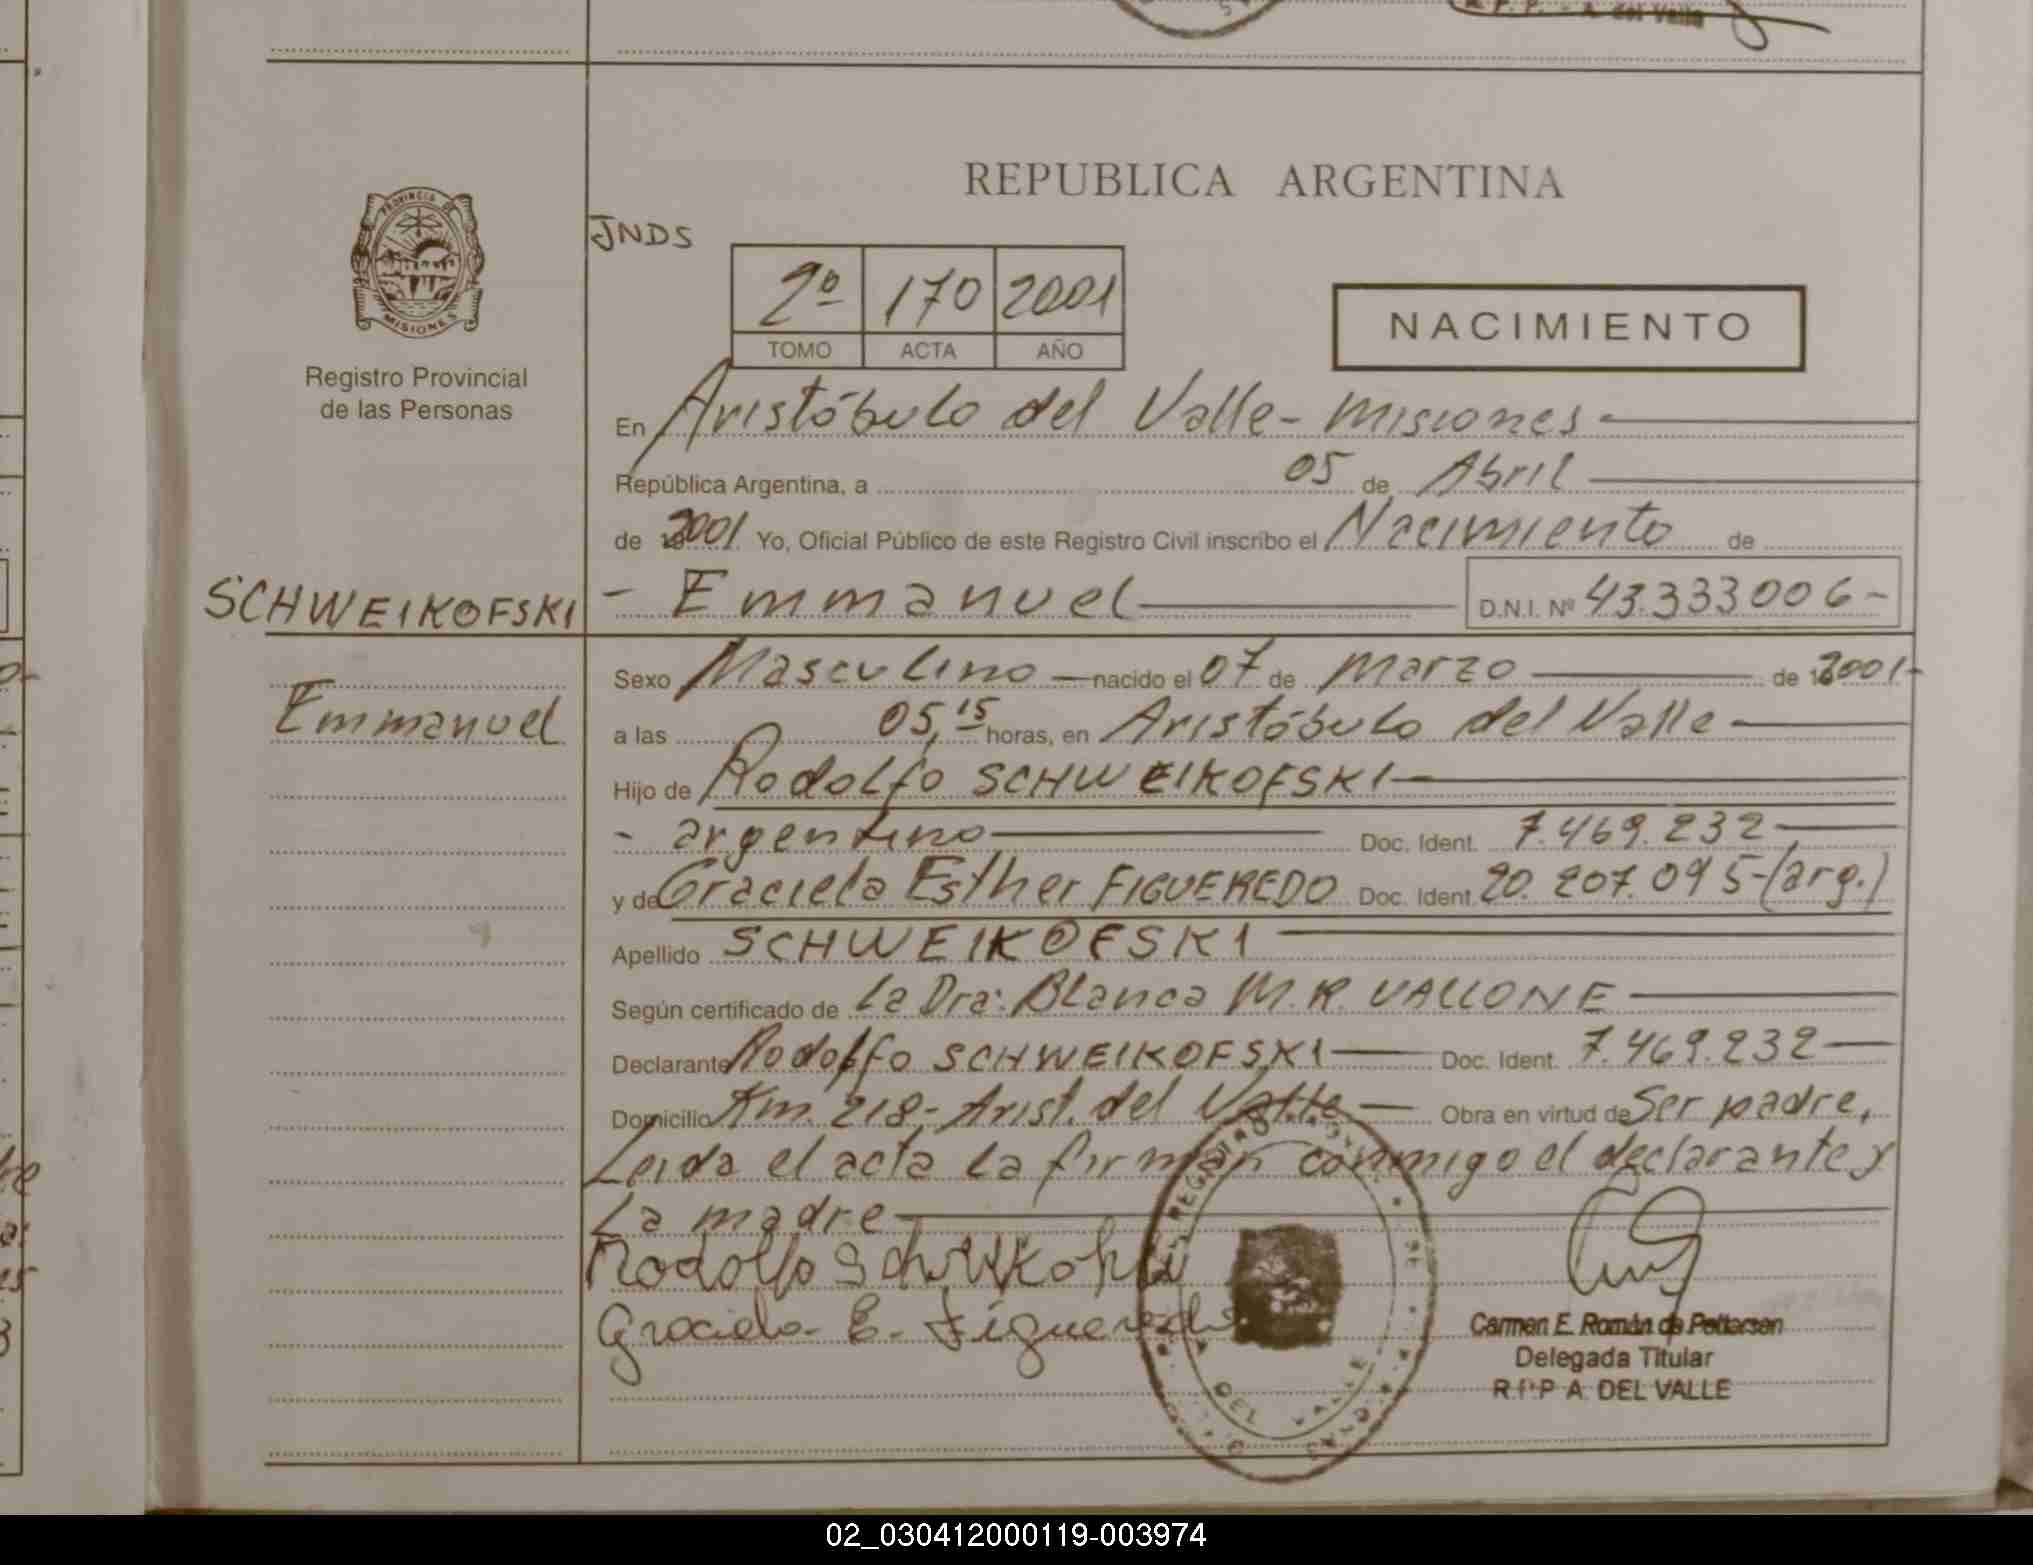 R. P. P. - A. del Valle
REPUBLICA ARGENTINA
PROVINCIA DE
MISIONES
Registro Provincial
de las Personas
JNDS
2º 170 2001
TOMO ACTA AÑO
NACIMIENTO
En Aristóbulo del Valle - Misiones
República Argentina, a 05 de Abril
de 2001 Yo, Oficial Público de este Registro Civil inscribo el Nacimiento de
SCHWEIKOFSKI
- Emmanuel D.N.I. Nº 43.333006-
Emmanuel
Sexo Masculino nacido el 07 de Marzo de 2001-
a las 05,15 horas, en Aristóbulo del Valle
Hijo de Rodolfo SCHWEIKOFSKI
- argentino Doc. Ident. 7.469.232
y de Graciela Esther FIGUEREDO Doc. Ident. 20.207.095-(arg.)
Apellido SCHWEIKOFSKI
Según certificado de La Dra: Blanca M.R. VALLONE
Declarante Rodolfo SCHWEIKOFSKI Doc. Ident. 7.469.232
Domicilio Km. 218- Arist. del Valle Obra en virtud de Ser padre,
Leida el acta la firman conmigo el declarante y
La madre
Rodolfo
Graciela E. Figueredo
DEL VALLE
Carmen E. Román de Pettersen
Delegada Titular
R.P.P A. DEL VALLE
02_030412000119-003974